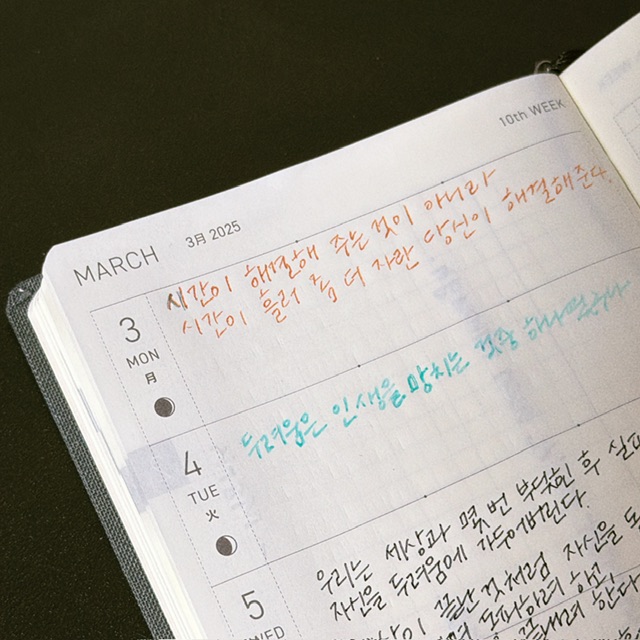 10th WEEK
MARCH 3月 2025
3
MON
月
시간이 해결해 주는 것이 아니라
시간이 흘러 좀 더 자란 당신이 해결해준다.
4
TUE
火
두려움은 인생을 망치는 것 중 하나
5
WED
우리는 세상과 몇 번 부딪힌 후
자신을 두려움에 가두어버린다.
끝난 것처럼 자신을